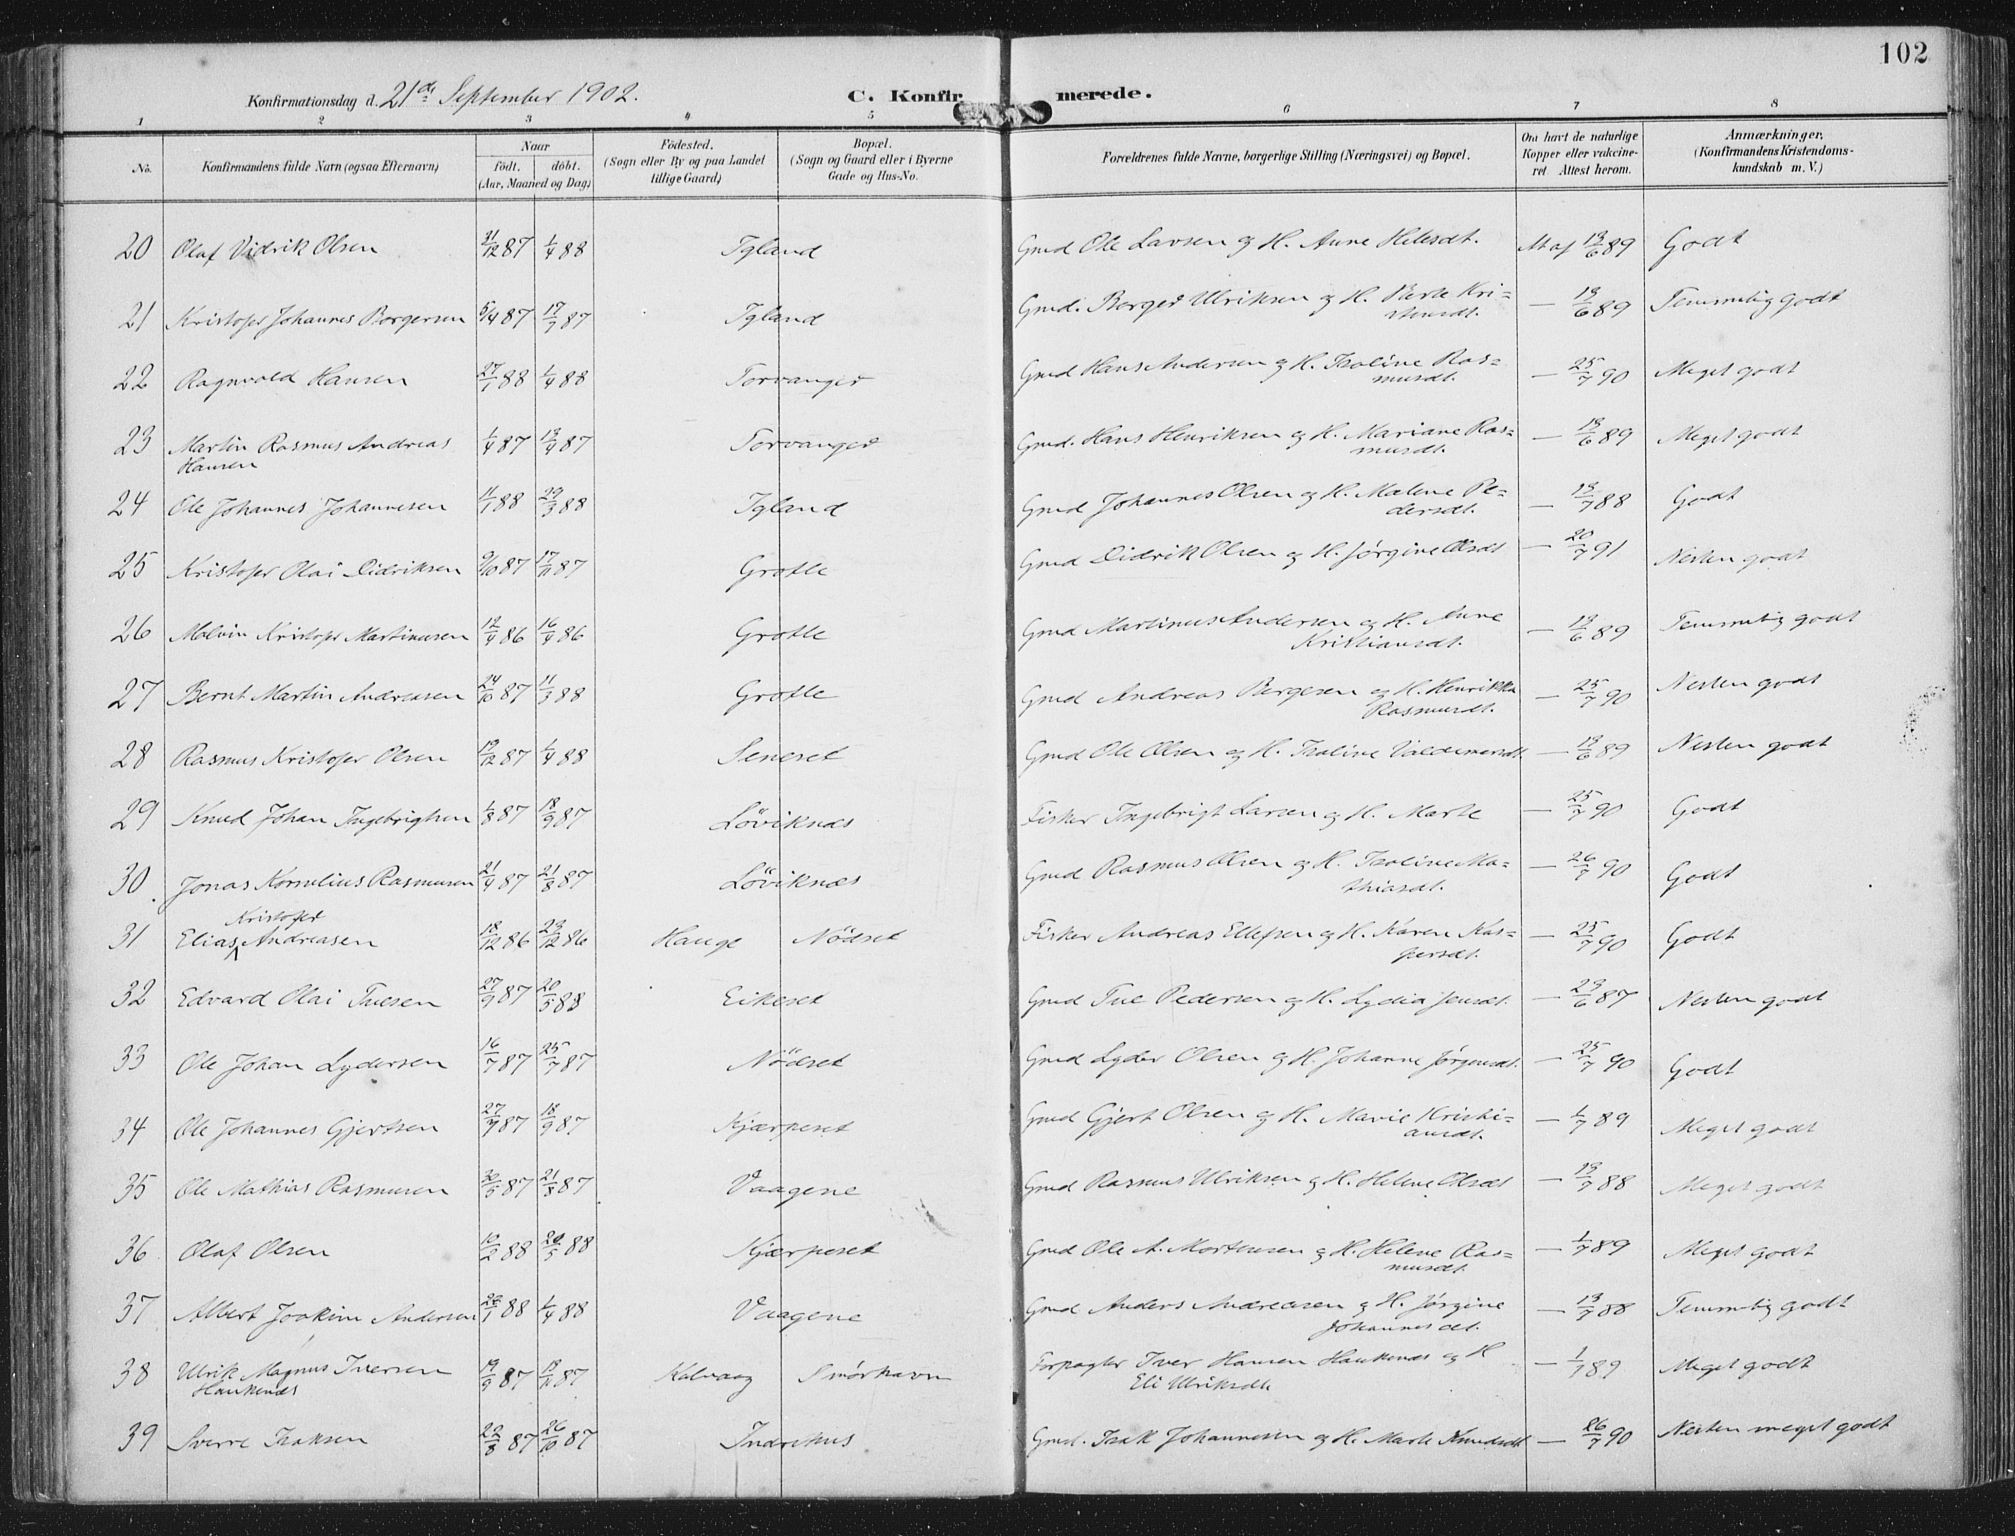 102
Konfirmationsdag d. 21de September 1902.
C. Konfirmerede.
1 2 3 4 5 6 7 8
No. Konfirmandens fulde Navn (ogsaa Efternavn) Naar født. døbt. (Aar, Maaned og Dag) Fødested. (Sogn eller By og paa Landet tillige Gaard) Bopæl. (Sogn og Gaard eller i Byerne Gade og Hus-No. Forældrenes fulde Navne, borgerlige Stilling (Næringsvei) og Bopæl. Om havt de naturlige Kopper eller vakcineret. Attest herom. Anmærkninger. (Konfirmandens Kristendomskundskab m. V.)
20 Olaf Vidrik Olsen 21/12 87 1/4 88 Igland Gmd Ole Larsen og H. Anne Hilesdt. At af 13/6 89 Godt
21 Kristofer Johannes Borgersen 5/4 87 17/7 87 Igland Gmd. Borger Ulriksen og H. Berte Kri-
stensdt. — 13/6 89 Temmelig godt
22 Ragnvald Hansen 27/1 88 1/4 88 Torvanger Gmd Hans Andersen og H. Isoline Ras-
musdt. — 25/7 90 Meget godt
23 Martin Rasmus Andreas
Hansen 1/4 87 13/4 87 Torvanger Gmd. Hans Henriksen og H. Mariane Ras-
musdt. — 13/6 89 Meget godt
24 Ole Johannes Johannesen 11/1 88 29/3 88 Igland Gmd Johannes Olsen og H. Malene Pe-
dersdt. — 13/7 88 Godt
25 Kristofer Olai Didriksen 9/10 87 17/11 87 Grotle Gmd Didrik Olsen og H. Jørgine Olsdt — 20/7 91 Nesten godt
26 Malvin Kristofer Martinusen 12/4 86 16/4 86 Grotle Gmd Martinus Andersen og H. Anne
Kristiansdt. — 13/6 89 Temmelig godt
27 Bernt Martin Andreasen 24/10 87 11/3 88 Grotle Gmd Andreas Børgesen og H. Henrikka
Rasmusdt. — 25/7 90 Nesten godt
28 Rasmus Kristofer Olsen 19/12 87 1/4 88 Seneset Gmd Ole Olsen og H. Isoline Valdemarsdt — 13/6 89 Nesten godt
29 Knud Johan Ingebrigtsen 1/8 87 18/9 87 Löviknæs Fisker Ingebrigt Larsen og H. Marte — 25/7 90 Godt
30. Jonas Kornelius Rasmusen 21/4 87 21/8 87 Löviknæs Gmd Rasmus Olsen og H. Isoline Ma-
thiasdt. — 26/7 90 Godt
Kristofer
31 Elias Andreasen 18/12 86 23/12 86 Hauge Nödset Fisker Andreas Ellefsen og H. Karen Kas-
persdt. — 25/7 90 Godt
32 Edvard Olai Tuesen 27/9 87 20/5 88 Eikeset Gmd Tue Pedersen og H. Lydia Jensdt. — 23/6 87 Nesten godt
33 Ole Johan Lydersen 16/7 87 25/7 87 Nödset Gmd Lyder Olsen og H. Johanne Jørgensdt. — 25/7 90 Godt
34 Ole Johannes Gjertsen 27/7 87 18/9 87 Kjærpeset Gmd Gjert Olsen og H. Marie Kristi-
ansdt. — 1/7 89 Meget godt
35 Ole Mathias Rasmusen 20/5 87 21/8 87 Vaagene Gmd Rasmus Ulriksen og H. Helene Olsdt — 13/7 88 Meget godt
36 Olaf Olsen 10/2 88 20/5 88 Kjærpeset Gmd Ole A. Mortensen og H. Helene Ras-
musdt. — 1/7 89 Meget godt
37 Albert Joakim Andersen 26/1 88 1/4 88 Vaagene Gmd Anders Andreasen og H. Jørgine
Johannesdt. — 13/7 88 Temmelig godt
38 Ulrik Magnus Iversen
Haukenæs 19/9 87 13/11 87 Kalvaag Smörhavn Forpagter Iver Hansen Haukenæs og H
Eli Ulriksdt. — 1/7 89 Meget godt
39 Sverre Isaksen 22/8 87 26/10 87 Indrehus Gmd. Isak Johannesen og H. Marte Knudsdt — 26/7 90 Nesten meget godt